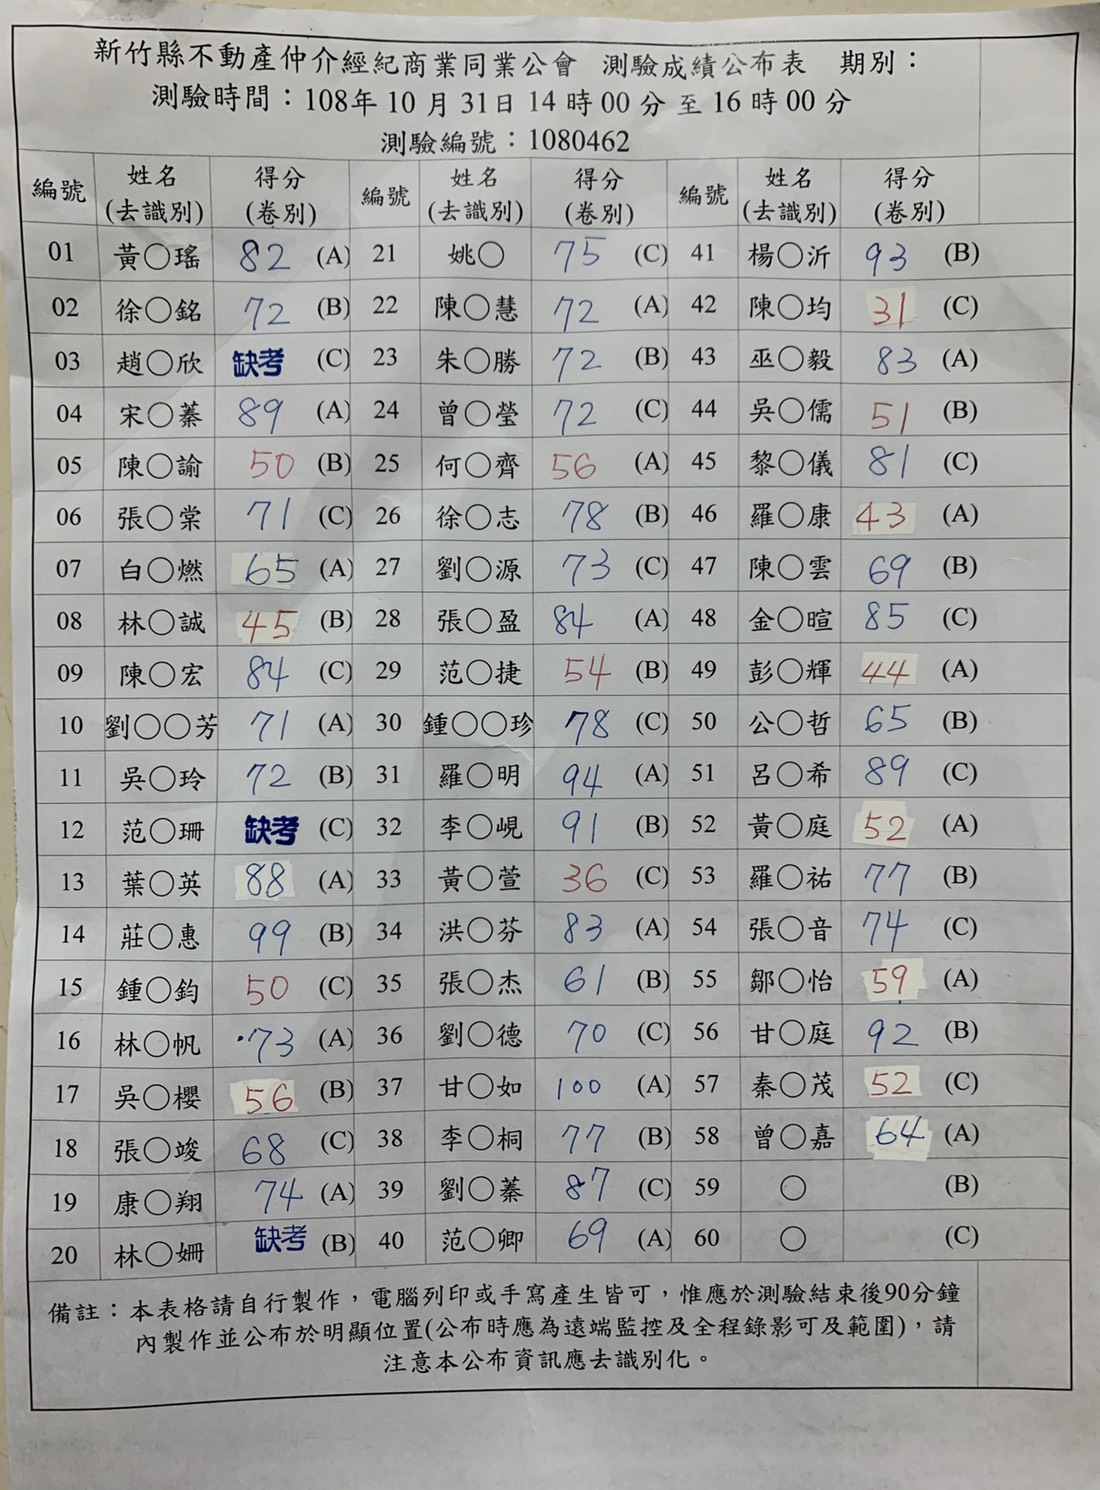 新竹縣不動產仲介經紀商業同業公會 測驗成績公布表 期別：
測驗時間：108年10月31日14時00分至16時00分
測驗編號：1080462
編號 姓名(去識別) 得分(卷別) 編號 姓名(去識別) 得分(卷別) 編號 姓名(去識別) 得分(卷別)
01 黃〇瑤 82 (A) 21 姚〇 75 (C) 41 楊〇沂 93 (B)
02 徐〇銘 72 (B) 22 陳〇慧 72 (A) 42 陳〇均 31 (C)
03 趙〇欣 缺考 (C) 23 朱〇勝 72 (B) 43 巫〇毅 83 (A)
04 宋〇蓁 89 (A) 24 曾〇瑩 72 (C) 44 吳〇儒 51 (B)
05 陳〇諭 50 (B) 25 何〇齊 56 (A) 45 黎〇儀 81 (C)
06 張〇棠 71 (C) 26 徐〇志 78 (B) 46 羅〇康 43 (A)
07 白〇燃 65 (A) 27 劉〇源 73 (C) 47 陳〇雲 69 (B)
08 林〇誠 45 (B) 28 張〇盈 84 (A) 48 金〇暄 85 (C)
09 陳〇宏 84 (C) 29 范〇捷 54 (B) 49 彭〇輝 44 (A)
10 劉〇〇芳 71 (A) 30 鍾〇〇珍 78 (C) 50 公〇哲 65 (B)
11 吳〇玲 72 (B) 31 羅〇明 94 (A) 51 呂〇希 89 (C)
12 范〇珊 缺考 (C) 32 李〇峴 91 (B) 52 黃〇庭 52 (A)
13 葉〇英 88 (A) 33 黃〇萱 36 (C) 53 羅〇祐 77 (B)
14 莊〇惠 99 (B) 34 洪〇芬 83 (A) 54 張〇音 74 (C)
15 鍾〇鈞 50 (C) 35 張〇杰 61 (B) 55 鄒〇怡 59 (A)
16 林〇帆 73 (A) 36 劉〇德 70 (C) 56 甘〇庭 92 (B)
17 吳〇櫻 56 (B) 37 甘〇如 100 (A) 57 秦〇茂 52 (C)
18 張〇竣 68 (C) 38 李〇桐 77 (B) 58 曾〇嘉 64 (A)
19 康〇翔 74 (A) 39 劉〇蓁 87 (C) 59 〇 (B)
20 林〇姍 缺考 (B) 40 范〇卿 69 (A) 60 〇 (C)
備註：本表格請自行製作，電腦列印或手寫產生皆可，惟應於測驗結束後90分鐘
內製作並公布於明顯位置(公布時應為遠端監控及全程錄影可及範圍)，請
注意本公布資訊應去識別化。